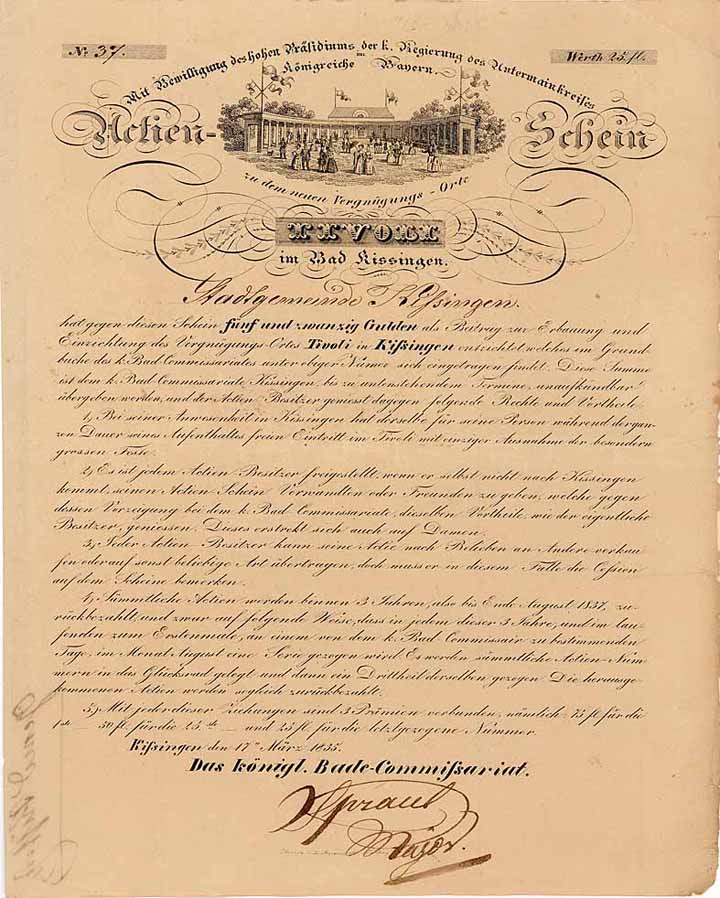 No. 37.
Werth 25 fl.
Mit Bewilligung des hohen Präsidiums der k. Regierung des Untermainkreises
im
Königreiche Bayern.
Actien-Schein
zu dem neuen Vergnügungs-Orte
TIVOLI
im Bad Kissingen.
Stadtgemeinde Kißingen.
hat gegen diesen Schein fünf und zwanzig Gulden als Beitrag zur Erbauung und
Einrichtung des Vergnügungs-Ortes Tivoli in Kißingen entrichtet, welches im Grund-
buche des k. Bad-Commissariates unter obiger Numer sich eingetragen findet. Diese Summe
ist dem k. Bad-Commissariate Kissingen, bis zu untenstehendem Termine, unaufkündbar
übergeben worden, und der Actien-Besitzer geniesst dagegen folgende Rechte und Vortheile.
1.) Bei seiner Anwesenheit in Kissingen hat derselbe für seine Person während der gan-
zen Dauer seines Aufenthaltes freien Eintritt im Tivoli mit einziger Ausnahme der besondern
grossen Feste.
2.) Es ist jedem Actien-Besitzer freigestellt, wenn er selbst nicht nach Kissingen
kommt, seinen Actien-Schein Verwandten oder Freunden zu geben, welche gegen
dessen Vorzeigung bei dem k. Bad-Commissariate, dieselben Vortheile, wie der eigentliche
Besitzer, geniessen. Dieses erstrekt sich auch auf Damen.
3.) Jeder Actien-Besitzer kann seine Actie nach Belieben an Andere verkau-
fen oder auf sonst beliebige Art übertragen, doch muss er in diesem Falle die Cession
auf dem Scheine bemerken.
4.) Sämmtliche Actien werden binnen 3 Jahren, also bis Ende August 1837. zu-
rückbezahlt, und zwar auf folgende Weise, dass in jedem dieser 3 Jahre, und im lau-
fenden zum Erstenmale, an einem von dem k. Bad-Commissair zu bestimmenden
Tage, im Monat August eine Serie gezogen wird. Es werden sämmtliche Actien-Num-
mern in das Glücksrad gelegt und dann ein Drittheil derselben gezogen. Die herausge-
kommenen Actien werden sogleich zurückbezahlt.
5.) Mit jeder dieser Ziehungen sind 3 Prämien verbunden, nämlich: 75 fl für die
1ste — 50 fl. für die 25.te — und 25 fl. für die letztgezogene Nummer.
Kißingen den 17n März 1835.
Das königl. Bade-Commißariat.
Major.